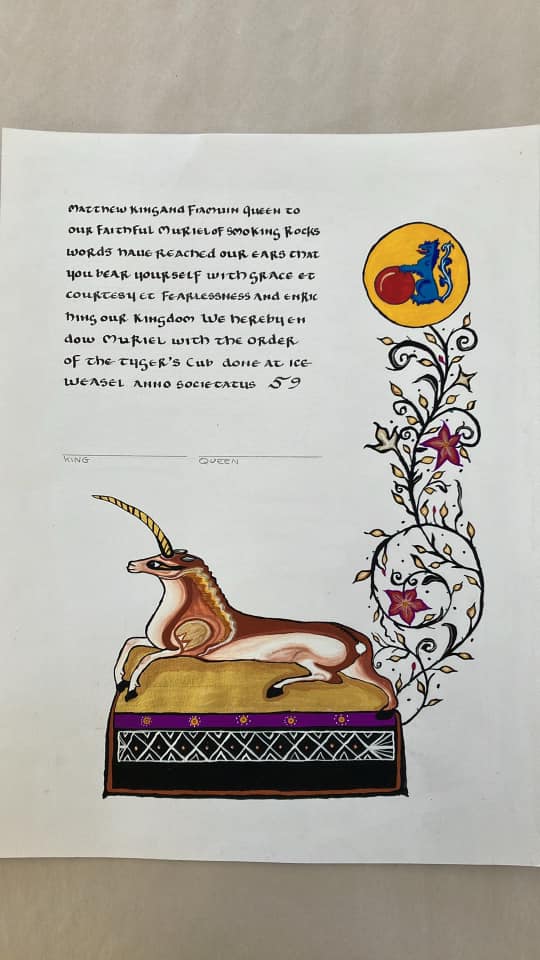 Matthew King and Fiamuin Queen to
our faithful Muriel of Smoking Rocks
words have reached our ears that
you bear yourself with grace et
courtesy et fearlessness and enric
hing our Kingdom We hereby en
dow Muriel with the order
of the tyger's Cub done at Ice
weasel anno societatus 59
KING QUEEN